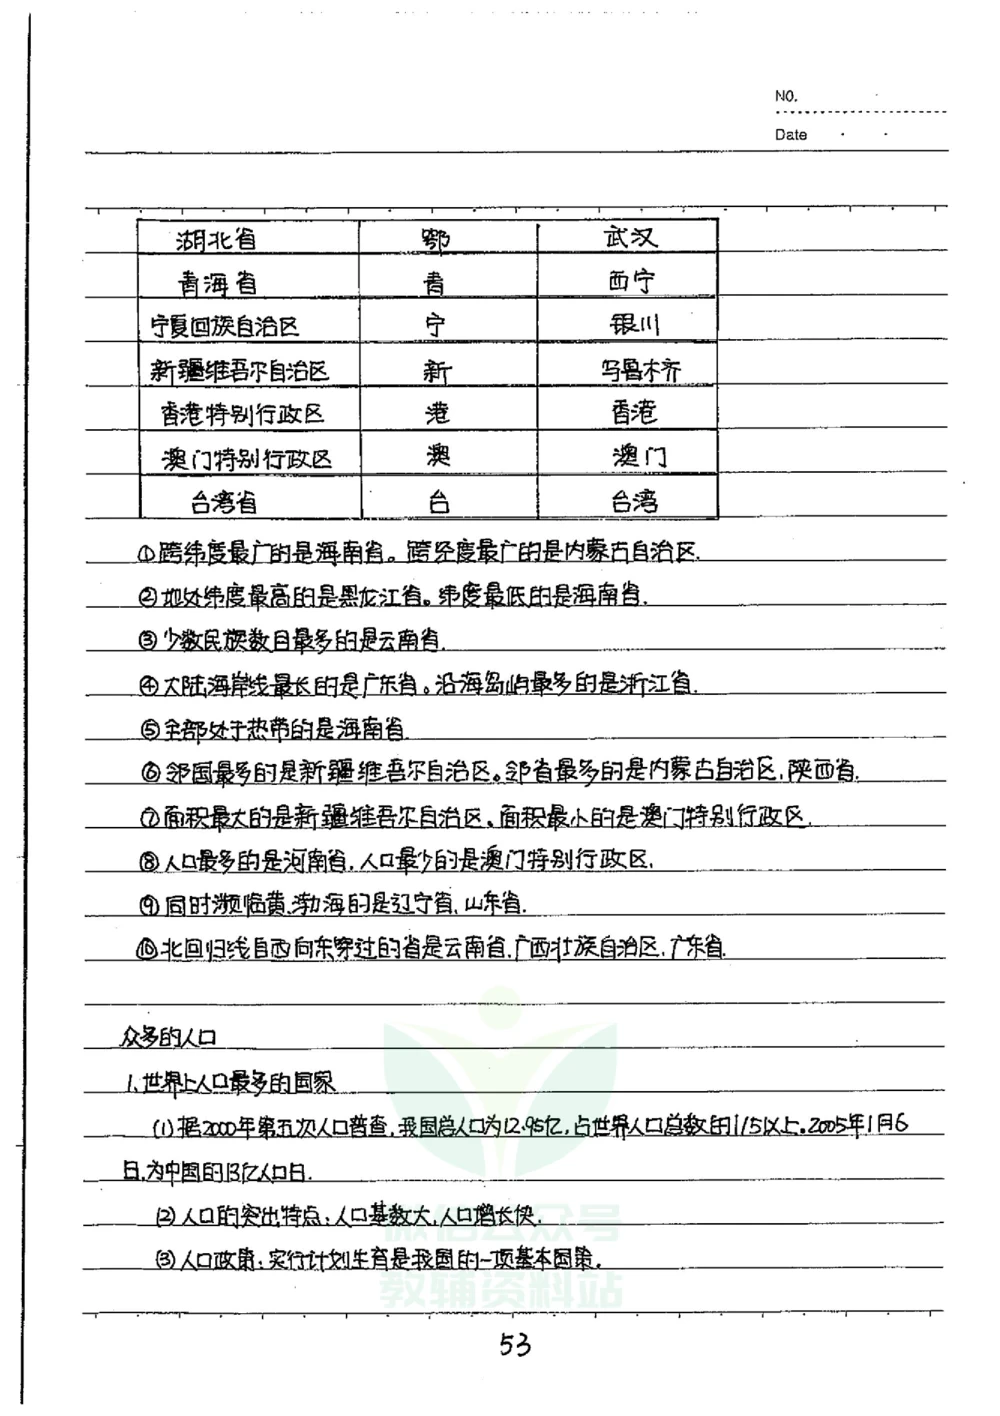 NO.
Date
湖北省 鄂 武汉
青海省 青 西宁
宁夏回族自治区 宁 银川
新疆维吾尔自治区 新 乌鲁木齐
香港特别行政区 港 香港
澳门特别行政区 澳 澳门
台湾省 台 台湾
①跨纬度最广的是海南省。跨经度最广的是内蒙古自治区.
②地处纬度最高的是黑龙江省。纬度最低的是海南省.
③少数民族数目最多的是云南省.
④大陆海岸线最长的是广东省。沿海岛屿最多的是浙江省.
⑤全部处于热带的是海南省
⑥邻国最多的是新疆维吾尔自治区。邻省最多的是内蒙古自治区,陕西省.
⑦面积最大的是新疆维吾尔自治区。面积最小的是澳门特别行政区.
⑧人口最多的是河南省,人口最少的是澳门特别行政区.
⑨同时濒临黄.渤海的是辽宁省、山东省.
⑩北回归线自西向东穿过的省是云南省.广西壮族自治区.广东省.
众多的人口
1.世界上人口最多的国家
(1)据2000年第五次人口普查,我国总人口为12.95亿,占世界人口总数的1/5以上。2005年1月6
日,为中国的13亿人口日.
(2)人口的突出特点:人口基数大,人口增长快.
(3)人口政策:实行计划生育是我国的一项基本国策.
微信公众号
教辅资料站
53